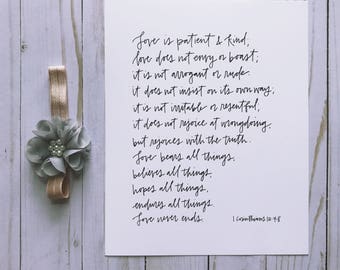 Love is patient & kind,
love does not envy or boast;
it is not arrogant or rude.
it does not insist on its own way;
it is not irritable or resentful,
it does not rejoice at wrongdoing,
but rejoices with the truth.
Love bears all things,
believes all things,
hopes all things,
endures all things.
Love never ends.
1 Corinthians 13:4-8